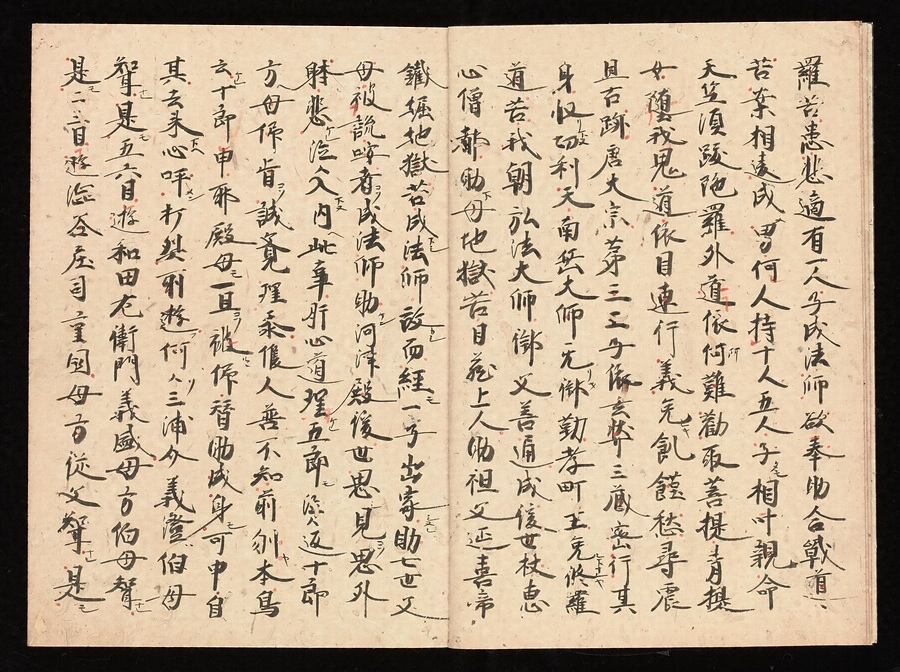 羅苦患悲適有一人子成法師欲奉助合戰道
苦業相違成男何人持十人五人子相叶親命
天竺須跋陀羅外道依何難勸取菩提青提
女堕我鬼道依目連行義免飢饉愁尋震
旦古跡唐大宗第三王子依玄弉三蔵密行其
身収切利天南岳大師无勤孝町王免修羅
道苦我朝弘法大師御父善通成後世杖恵
心僧都助母地獄苦日蔵上人助祖父延喜帝
鐵堀地獄苦成法師設而經一子出家助七世父
母被説者成法師助河津殿後世思見思外
躰悲泣入内此事肝心道理五郎泣返十郎
方母仰肯誠覚理人善不知前本烏
云十郎申耶殿母一旦被仰替助成身可申自
其云来心呼打契列遊何三浦介義澄伯母
聟是五六目遊和田左衛門義盛母方伯母聟
是二目遊澁谷庄司重国母方従父聟是